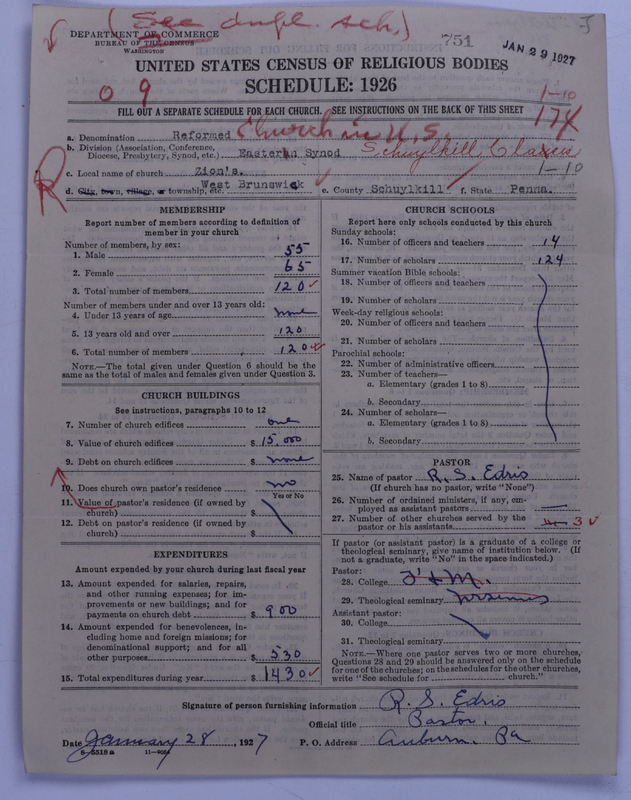 (See dupl. sch.)
DEPARTMENT OF COMMERCE
BUREAU OF THE CENSUS
WASHINGTON
751
JAN 29 1927
UNITED STATES CENSUS OF RELIGIOUS BODIES
SCHEDULE: 1926
0 9
1-10
FILL OUT A SEPARATE SCHEDULE FOR EACH CHURCH. SEE INSTRUCTIONS ON THE BACK OF THIS SHEET
174
a. Denomination Reformed Church in U.S.
b. Division (Association, Conference, Diocese, Presbytery, Synod, etc.) Eastern Synod Schuylkill Classis
1-10
c. Local name of church Zion's.
R
d. City, town, village, or township, etc. West Brunswick e. County Schuylkill f. State Penna.
MEMBERSHIP
Report number of members according to definition of
member in your church
Number of members, by sex:
1. Male 55
2. Female 65
3. Total number of members 120
Number of members under and over 13 years old:
4. Under 13 years of age none
5. 13 years old and over 120
6. Total number of members 120
NOTE.—The total given under Question 6 should be the
same as the total of males and females given under Question 3.
CHURCH BUILDINGS
See instructions, paragraphs 10 to 12
7. Number of church edifices one
8. Value of church edifices $ 15,000
9. Debt on church edifices $ none
10. Does church own pastor's residence no
Yes or No
11. Value of pastor's residence (if owned by
church) $
12. Debt on pastor's residence (if owned by
church) $
EXPENDITURES
Amount expended by your church during last fiscal year
13. Amount expended for salaries, repairs,
and other running expenses; for im-
provements or new buildings; and for
payments on church debt $ 900
14. Amount expended for benevolences, in-
cluding home and foreign missions; for
denominational support; and for all
other purposes $ 530
15. Total expenditures during year $ 1430
CHURCH SCHOOLS
Report here only schools conducted by this church
Sunday schools:
16. Number of officers and teachers 14
17. Number of scholars 124
Summer vacation Bible schools:
18. Number of officers and teachers
19. Number of scholars
Week-day religious schools:
20. Number of officers and teachers
21. Number of scholars
Parochial schools:
22. Number of administrative officers
23. Number of teachers—
a. Elementary (grades 1 to 8)
b. Secondary
24. Number of scholars—
a. Elementary (grades 1 to 8)
b. Secondary
PASTOR
25. Name of pastor R. S. Edris
(If church has no pastor, write "None")
26. Number of ordained ministers, if any, em-
ployed as assistant pastors
27. Number of other churches served by the
pastor or his assistants 3
If pastor (or assistant pastor) is a graduate of a college or
theological seminary, give name of institution below. (If
not a graduate, write "No" in the space indicated.)
Pastor:
28. College F & M.
29. Theological seminary Ursinus
Assistant pastor:
30. College
31. Theological seminary
NOTE.—Where one pastor serves two or more churches,
Questions 28 and 29 should be answered only on the schedule
for one of the churches; on the schedules for the other churches,
write "See schedule for church."
Signature of person furnishing information R. S. Edris
Official title Pastor.
Date January 28, 1927 P. O. Address Auburn. Pa
8-5518a 11-9084